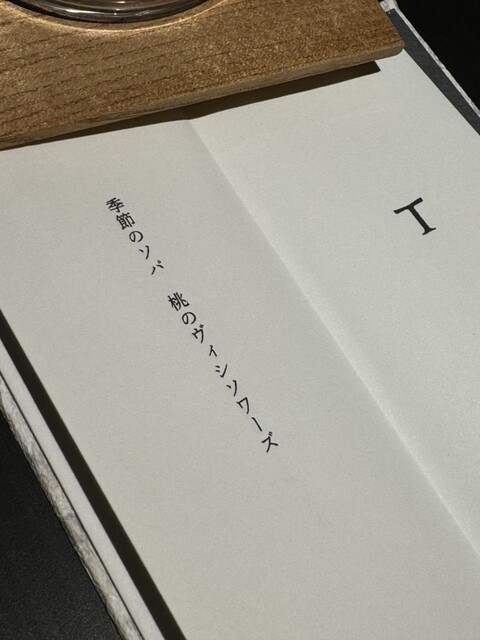 季節のソバ　桃のヴィシソワーズ
I